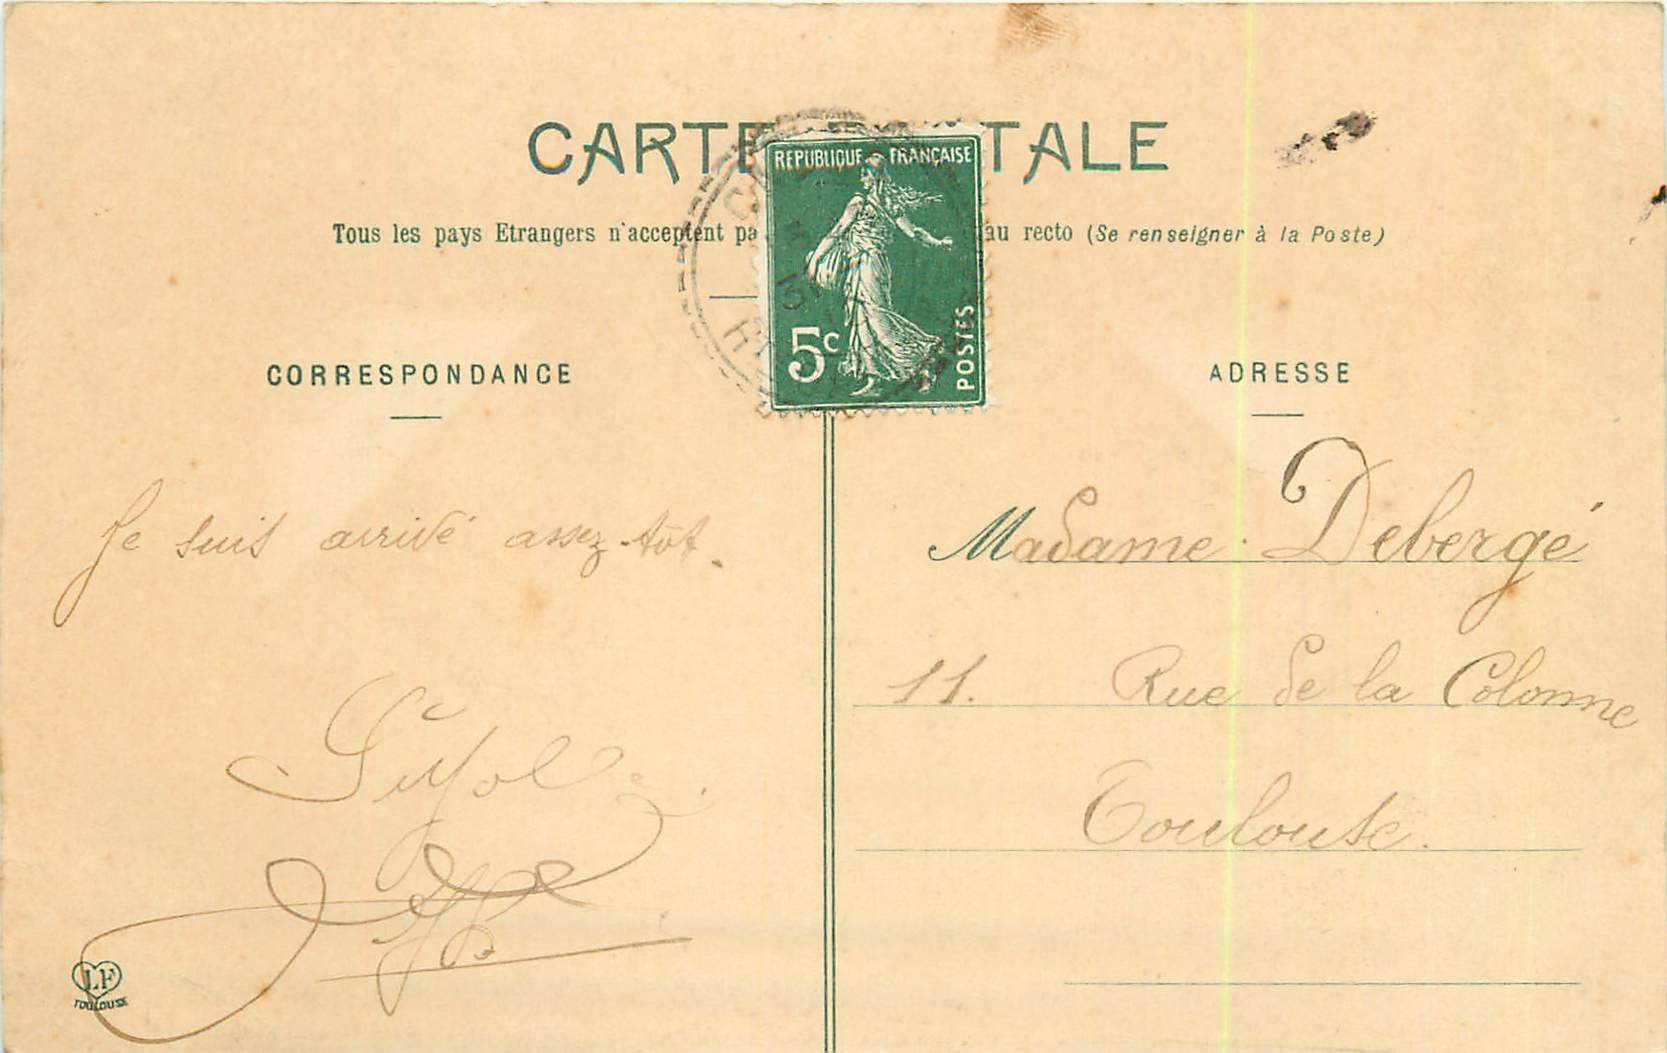 CARTE POSTALE
Tous les pays Etrangers n'acceptent pa
au recto (Se renseigner à la Poste)
REPUBLIQUE FRANÇAISE
5c
POSTES
CORRESPONDANCE
Je suis arrivé assez tôt.
LF
TOULOUSE
ADRESSE
Madame Debergé
11. Rue de la Colonne
Toulouse.